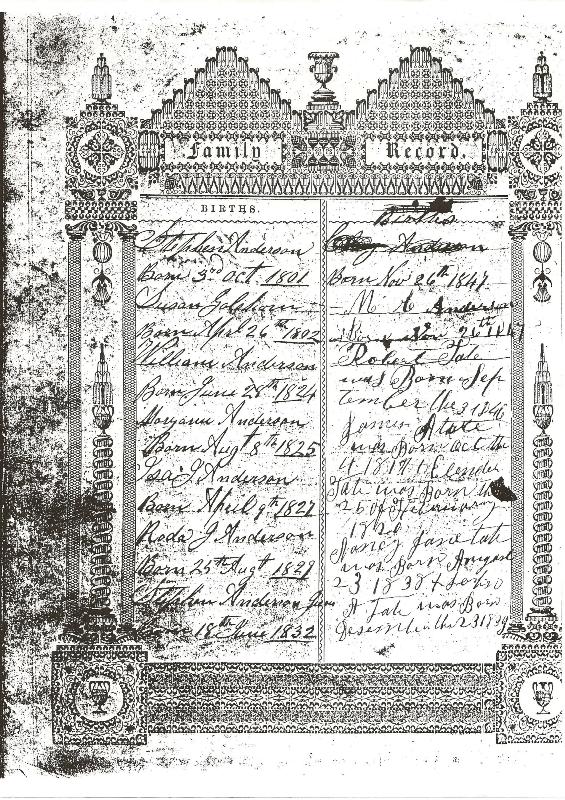 Family Record.
BIRTHS.
Stephen Anderson
Born 3rd Oct. 1801
Susan
Born Aprl 26th 1802
William Anderson
Born June 28th 1824
Maryann Anderson
Born Aug 8th 1825
J. Anderson
Born April 9th 1827
Roda J. Anderson
Born 25th Augt 1829
Stephen Anderson Junr
Born 18th June 1832
Births
Anderson
Born Nov 26th 1847
M Anderson
Born Nov 26th 1847
Robert Tate
was Born Sep
tember the 3 1846
James A tate
was Born Oct the
4 18
Tate was Born the
25 of February
Nancy Jane tate
was Born August
23 1838 + John
A Tate was Born